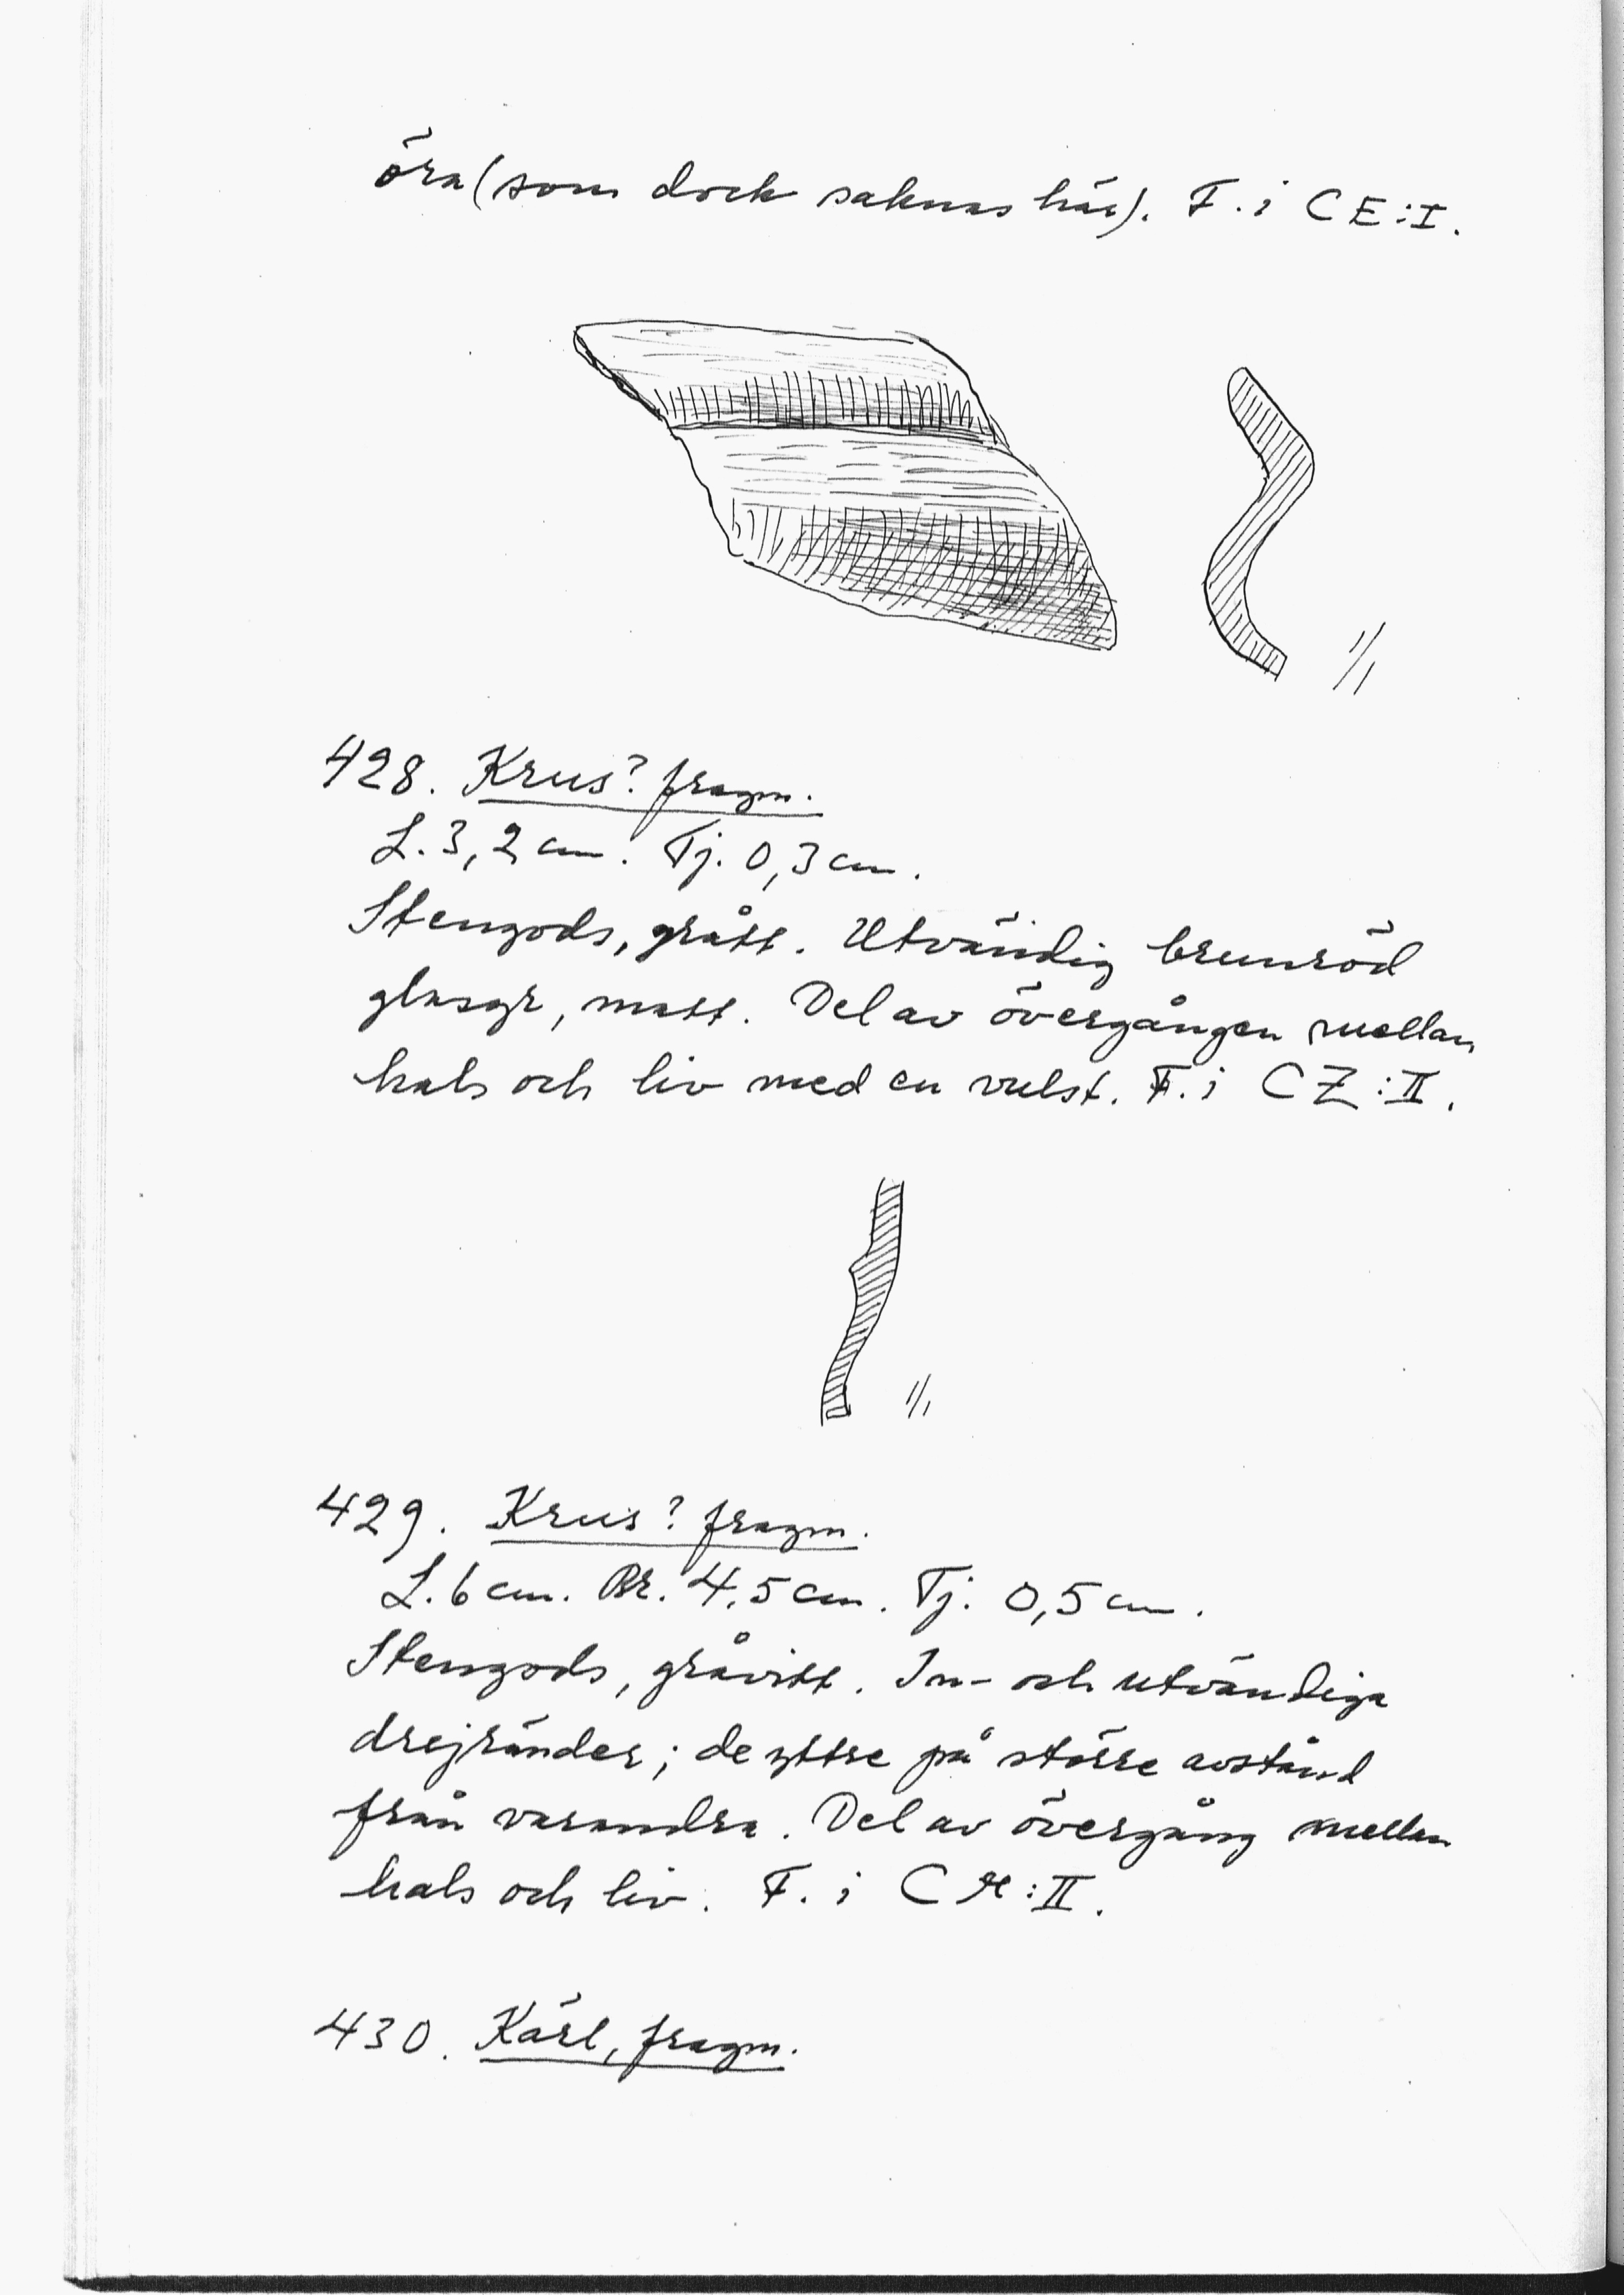 öra (som dock saknas här). F. i CE:I.
1/1
428. Krus? fragm.
L. 3,2 cm. Tj. 0,3 cm.
Stengods, grått. Utvändig brunröd
glasyr, matt. Del av övergången mellan
hals och liv med en vulst. F. i CZ:II.
1/1
429. Krus? fragm.
L. 6 cm. Br. 4,5 cm. Tj. 0,5 cm.
Stengods, gråvitt. In- och utvändiga
drejränder; de yttre på större avstånd
från varandra. Del av övergång mellan
hals och liv. F. i C:II.
430. Kärl, fragm.